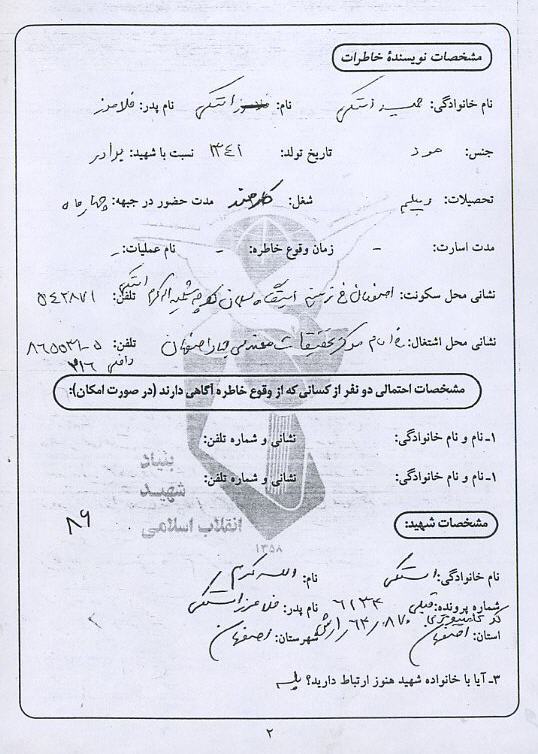 مشخصات نویسندهٔ خاطرات
نام خانوادگی: حمید اشتکی نام: اشتکی نام پدر: غلامرز
جنس: مرد تاریخ تولد: ۱۳۴۱ نسبت با شهید: برادر
تحصیلات: دیپلم شغل: کارمند مدت حضور در جبهه: چهار ماه
مدت اسارت: - زمان وقوع خاطره: - نام عملیات: -
نشانی محل سکونت: اصفهان خ زینبیه ایستگاه سلمان کوچه شهید اله کرم اشتکی تلفن: ۵۴۲۸۷۱
نشانی محل اشتغال: خ امام مرکز تحقیقات مهندسی جهاد اصفهان تلفن: ۵-۸۶۵۵۳۱
داخلی ۳۱۶
مشخصات احتمالی دو نفر از کسانی که از وقوع خاطره آگاهی دارند (در صورت امکان):
۱ـ نام و نام خانوادگی: نشانی و شماره تلفن:
۱ـ نام و نام خانوادگی: نشانی و شماره تلفن:
بنیاد
شهید
انقلاب اسلامی
۱۳۵۸
۸۹
مشخصات شهید:
نام خانوادگی: اشتکی نام: اله کرم
شماره پرونده: قبلی ۶۱۳۴ نام پدر: غلامرز اشتکی
کد کامپیوتری ۶۴۰۸۷۰ ارتش
استان: اصفهان شهرستان: اصفهان
۳ـ آیا با خانواده شهید هنوز ارتباط دارید؟ بله
۲